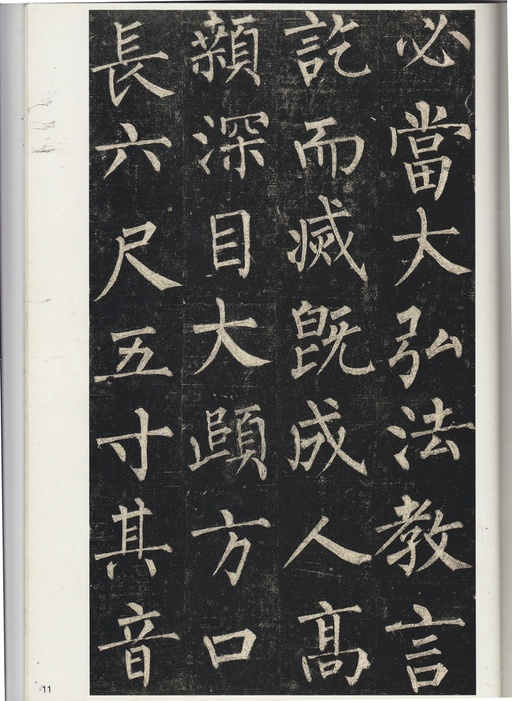 必當大弘法教言
訖而滅既成人髙
顙深目大頤方口
長六尺五寸其音
11